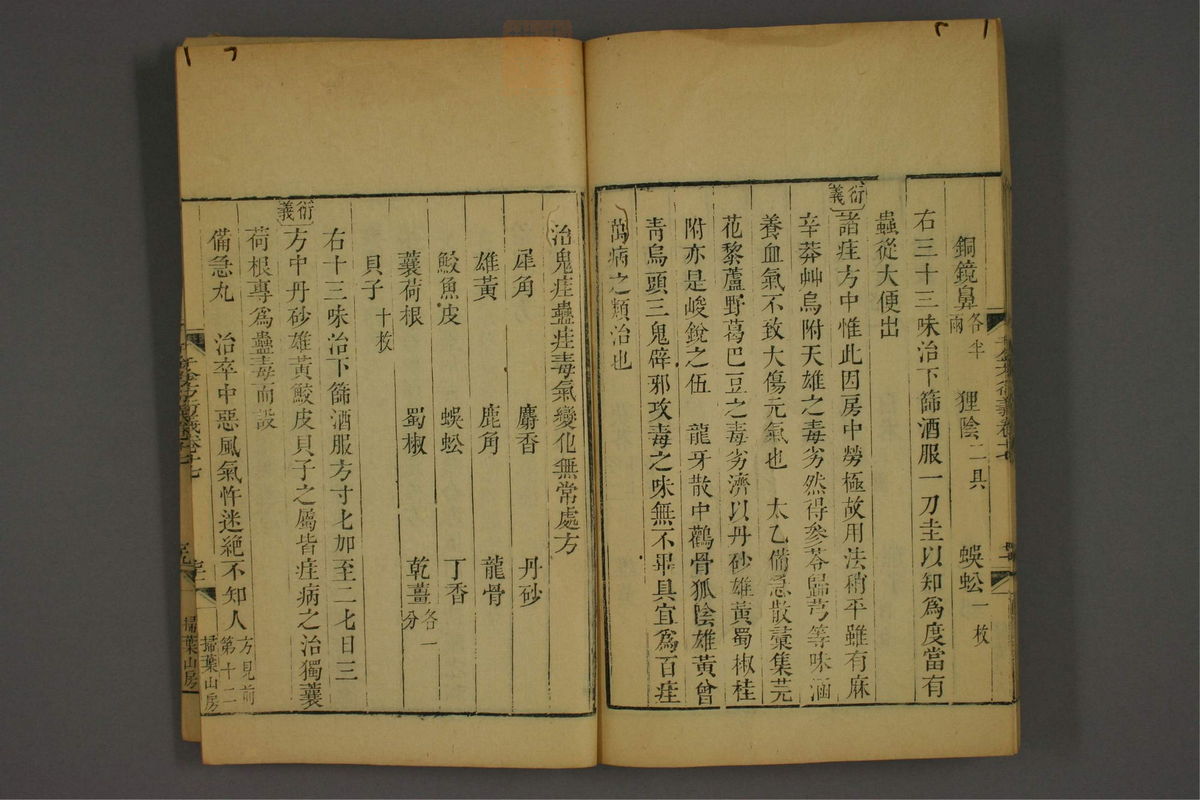 銅鏡鼻各半兩　貍陰二具　蜈蚣一枚
右三十三味治下篩酒服一刀圭以知爲度當有
蟲從大便出
衍義　諸疰方中惟此因房中勞極故用法稍平雖有麻
辛莽艸烏附天雄之毒劣然得參苓歸芎等味涵
養血氣不致大傷元氣也　太乙備急散彙集芫
花黎蘆野葛巴豆之毒劣濟以丹砂雄黃蜀椒桂
附亦是峻銳之伍　龍牙散中鸛骨狐陰雄黃曾
靑烏頭三鬼辟邪攻毒之味無不畢具宜爲百疰
萬病之類治也
治鬼疰蠱疰毒氣變化無常處方
犀角　麝香　丹砂
雄黃　鹿角　龍骨
鮫魚皮　蜈蚣　丁香
蘘荷根　蜀椒　乾薑各一分
貝子十枚
右十三味治下篩酒服方寸匕加至二匕日三
衍義　方中丹砂雄黃鮫皮貝子之屬皆疰病之治獨蘘
荷根專爲蠱毒而設
備急丸　治卒中惡風氣忤迷絶不知人方見前第十二
掃葉山房
掃葉山房